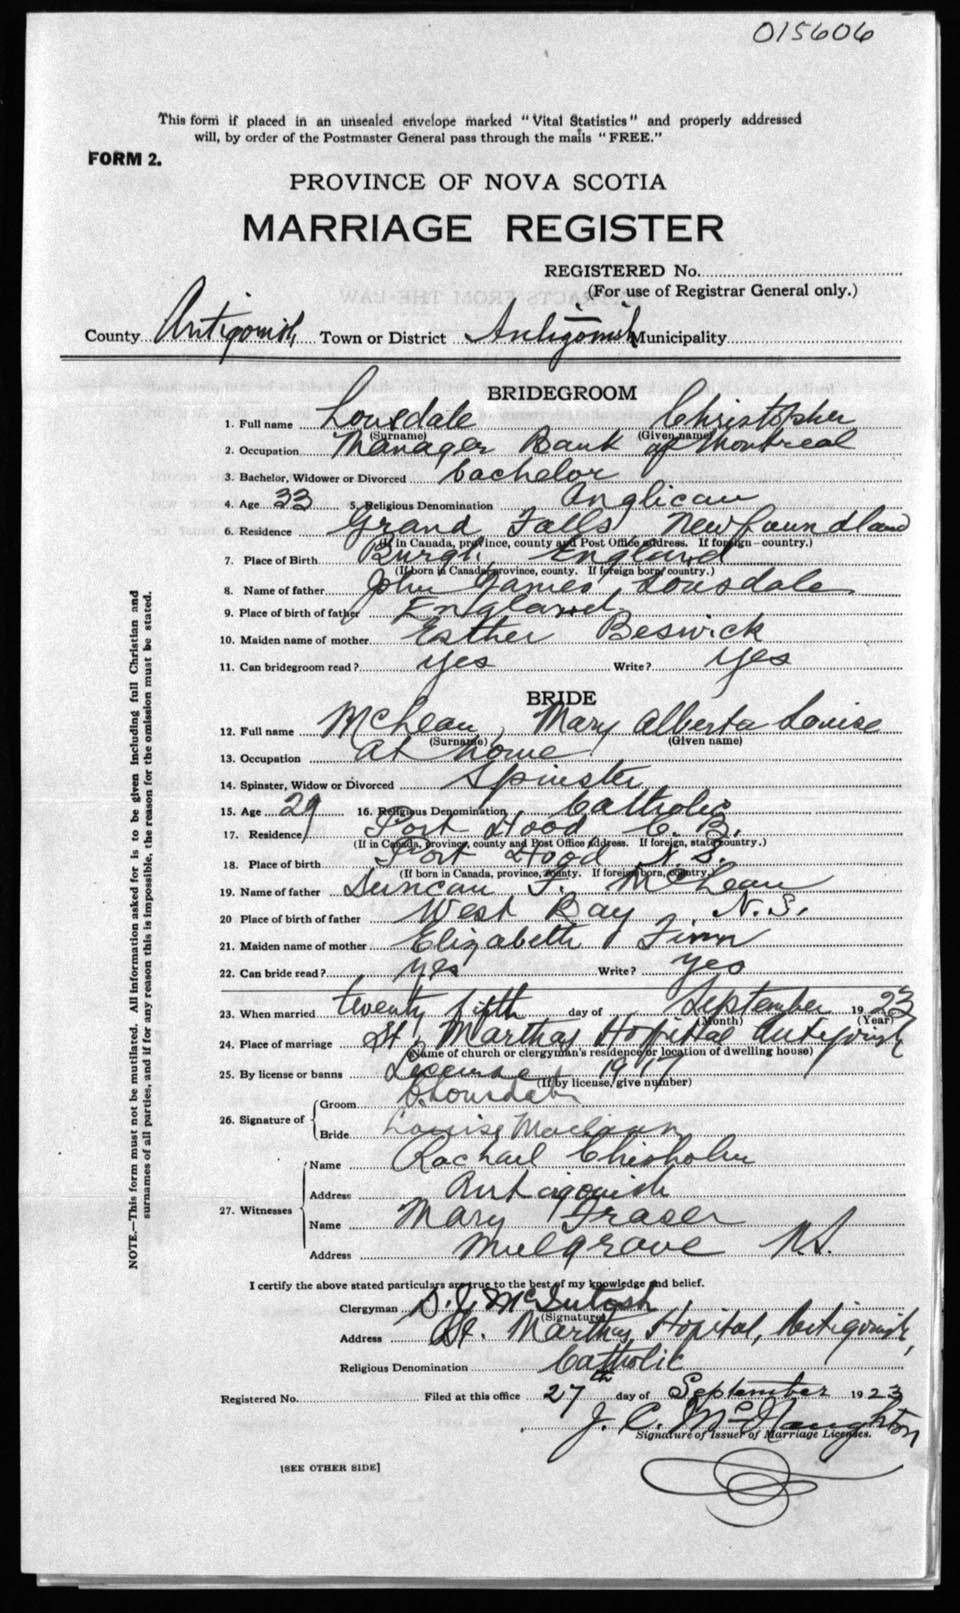 015606
This form if placed in an unsealed envelope marked "Vital Statistics" and properly addressed
will, by order of the Postmaster General pass through the mails "FREE."
FORM 2.
PROVINCE OF NOVA SCOTIA
MARRIAGE REGISTER
REGISTERED No.
(For use of Registrar General only.)
County Antigonish Town or District Antigonish Municipality
BRIDEGROOM
1. Full name Lonsdale Christopher
(Surname) (Given name)
2. Occupation Manager Bank of Montreal
3. Bachelor, Widower or Divorced bachelor
4. Age 33 5. Religious Denomination Anglican
6. Residence Grand Falls Newfoundland
(If in Canada, province, county and Post Office address. If foreign—country.)
7. Place of Birth Burgh England
(If born in Canada, province, county. If foreign born, country.)
8. Name of father John James Lonsdale
9. Place of birth of father England
10. Maiden name of mother Esther Beswick
11. Can bridegroom read? Yes Write? Yes
BRIDE
12. Full name McLean, Mary Alberta Louise
(Surname) (Given name)
13. Occupation at home
14. Spinster, Widow or Divorced Spinster
15. Age 29 16. Religious Denomination Catholic
17. Residence Port Hood C. B.
(If in Canada, province, county and Post Office address. If foreign, state country.)
18. Place of birth Port Hood N. S.
(If born in Canada, province, county. If foreign born, country.)
19. Name of father Duncan F. McLean
20 Place of birth of father West Bay, N. S.
21. Maiden name of mother Elizabeth Finn
22. Can bride read? Yes Write? Yes
23. When married twenty fifth day of September 1923
(Month) (Year)
24. Place of marriage St. Marthas Hospital Antigonish
(Name of church or clergyman's residence or location of dwelling house)
25. By license or banns License 1917
(If by license, give number)
26. Signature of
Groom C. Lonsdale
Bride Louise Maclean
27. Witnesses
Name Rachael Chisholm
Address Antigonish
Name Mary Fraser
Address Mulgrave N.S.
I certify the above stated particulars are true to the best of my knowledge and belief.
Clergyman McIntosh
(Signature)
Address St. Marthas Hopital, Antigonish,
Religious Denomination Catholic
Registered No. Filed at this office 27th day of September 1923
J. C. McNaughton
Signature of Issuer of Marriage Licenses.
[SEE OTHER SIDE]
NOTE.—This form must not be mutilated. All information asked for is to be given including full Christian and
surnames of all parties, and if for any reason this is impossible, the reason for the omission must be stated.